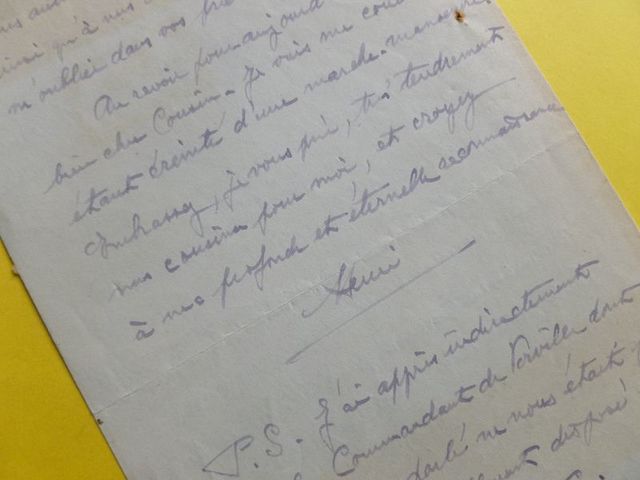 ainsi qu'à nos
n'oubliez dans vos priè
Au revoir pour aujourd
bien cher Cousin. Je vais me couc
étant éreinté d'une marche-manœuvre.
Embrassez, je vous prie, très tendrement
nos cousines pour moi, et croyez
à ma profonde et éternelle reconnaissance
Henri
P.S. J'ai appris indirectement
Commandant de Verville dont
parlé ne nous était p
disposé